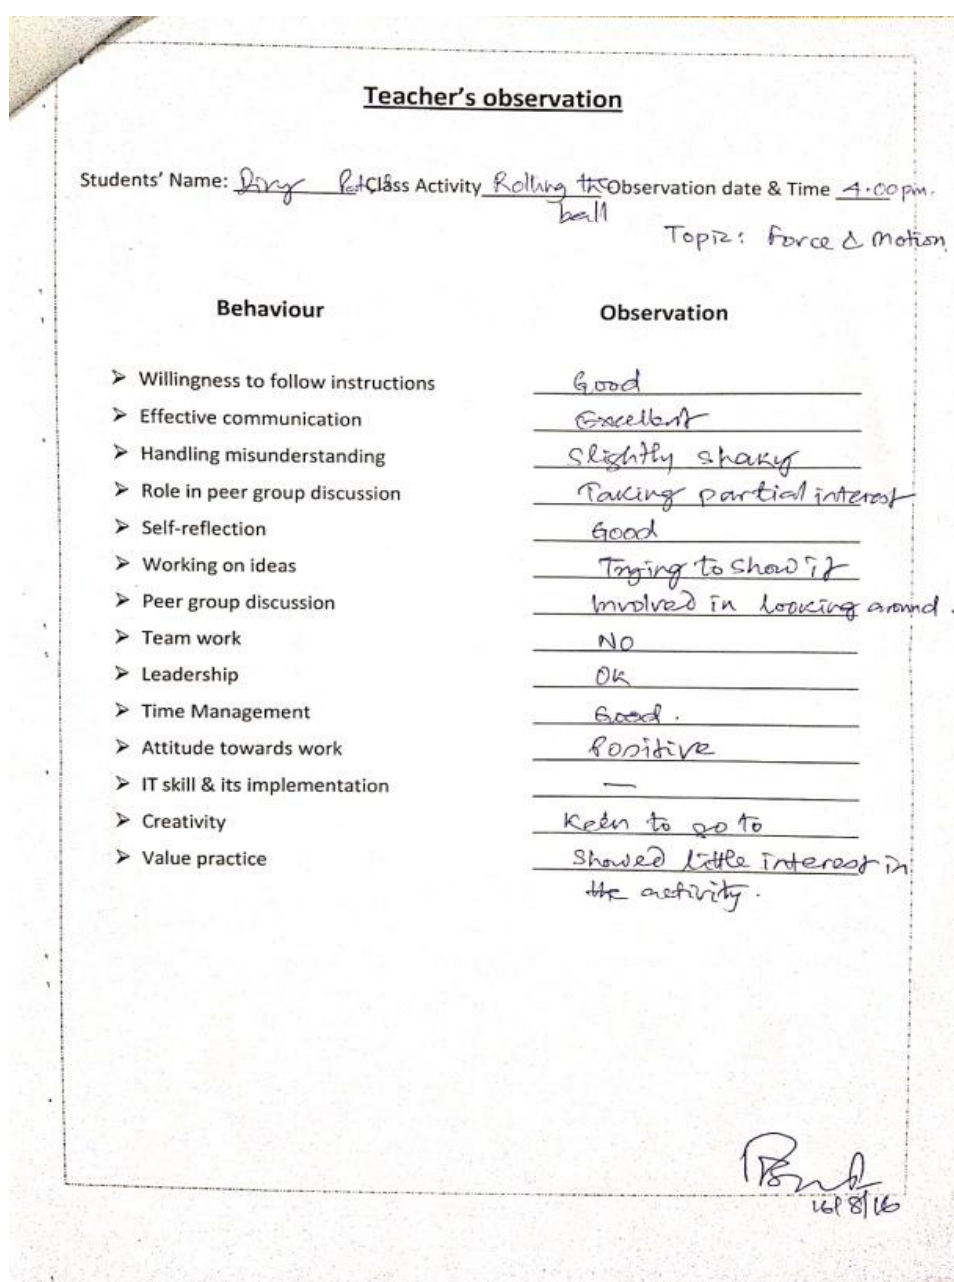 Teacher's observation
Students' Name: Class Activity Rolling the Observation date & Time 4.00 pm.
ball
Topic: Force & Motion
Behaviour Observation
➢ Willingness to follow instructions Good
➢ Effective communication Excellent
➢ Handling misunderstanding Slightly shaky
➢ Role in peer group discussion Taking partial interest
➢ Self-reflection Good
➢ Working on ideas Trying to show it
➢ Peer group discussion Involved in looking around.
➢ Team work NO
➢ Leadership OK
➢ Time Management Good.
➢ Attitude towards work Positive
➢ IT skill & its implementation —
➢ Creativity Keen to go to
➢ Value practice Showed little interest in
the activity.
16/8/16